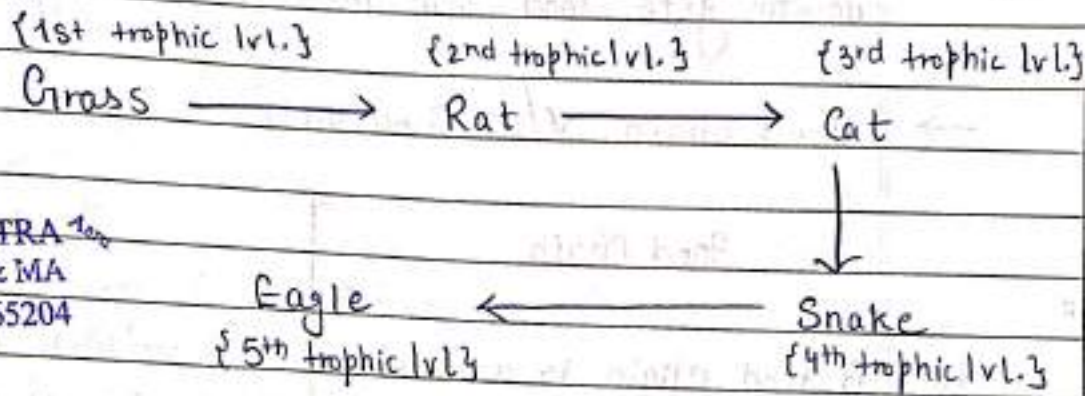 {1st trophic lvl.} {2nd trophic lvl.} {3rd trophic lvl.}
Grass → Rat → Cat
↓
Eagle ← Snake
{5th trophic lvl} {4th trophic lvl.}
TRA
MA
55204